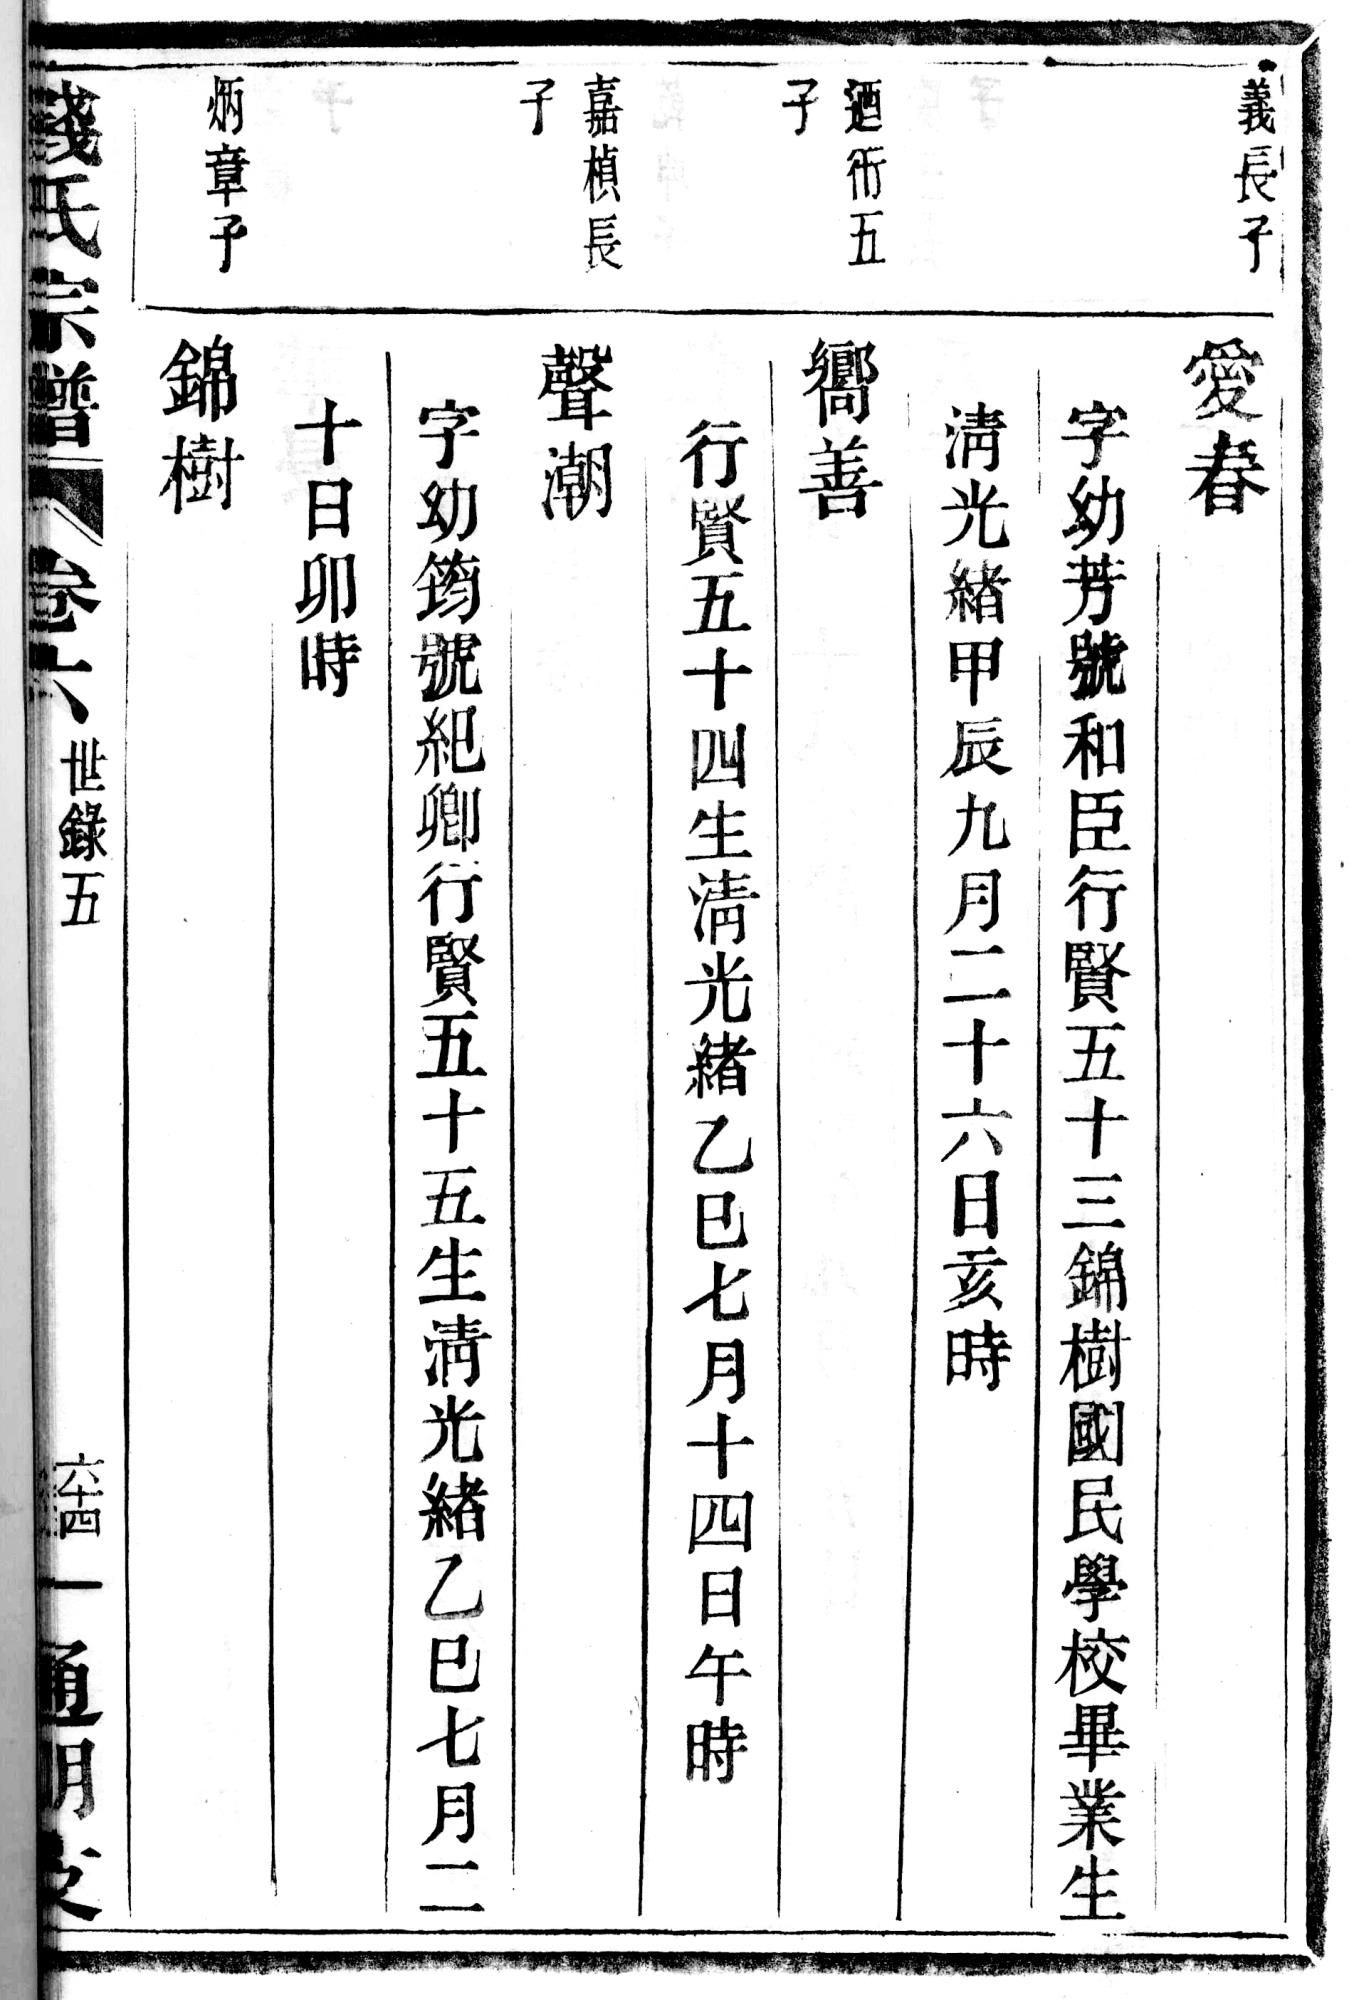 義長子
愛春
字幼芳號和臣行賢五十三錦樹國民學校畢業生
淸光緒甲辰九月二十六日亥時
迺術五
子
嚮善
行賢五十四生淸光緒乙巳七月十四日午時
嘉楨長
子
聲潮
字幼筠號紀卿行賢五十五生淸光緒乙巳七月二
十日卯時
炳章子
錦樹
錢氏宗譜
卷六
世錄五
六十四
通明支